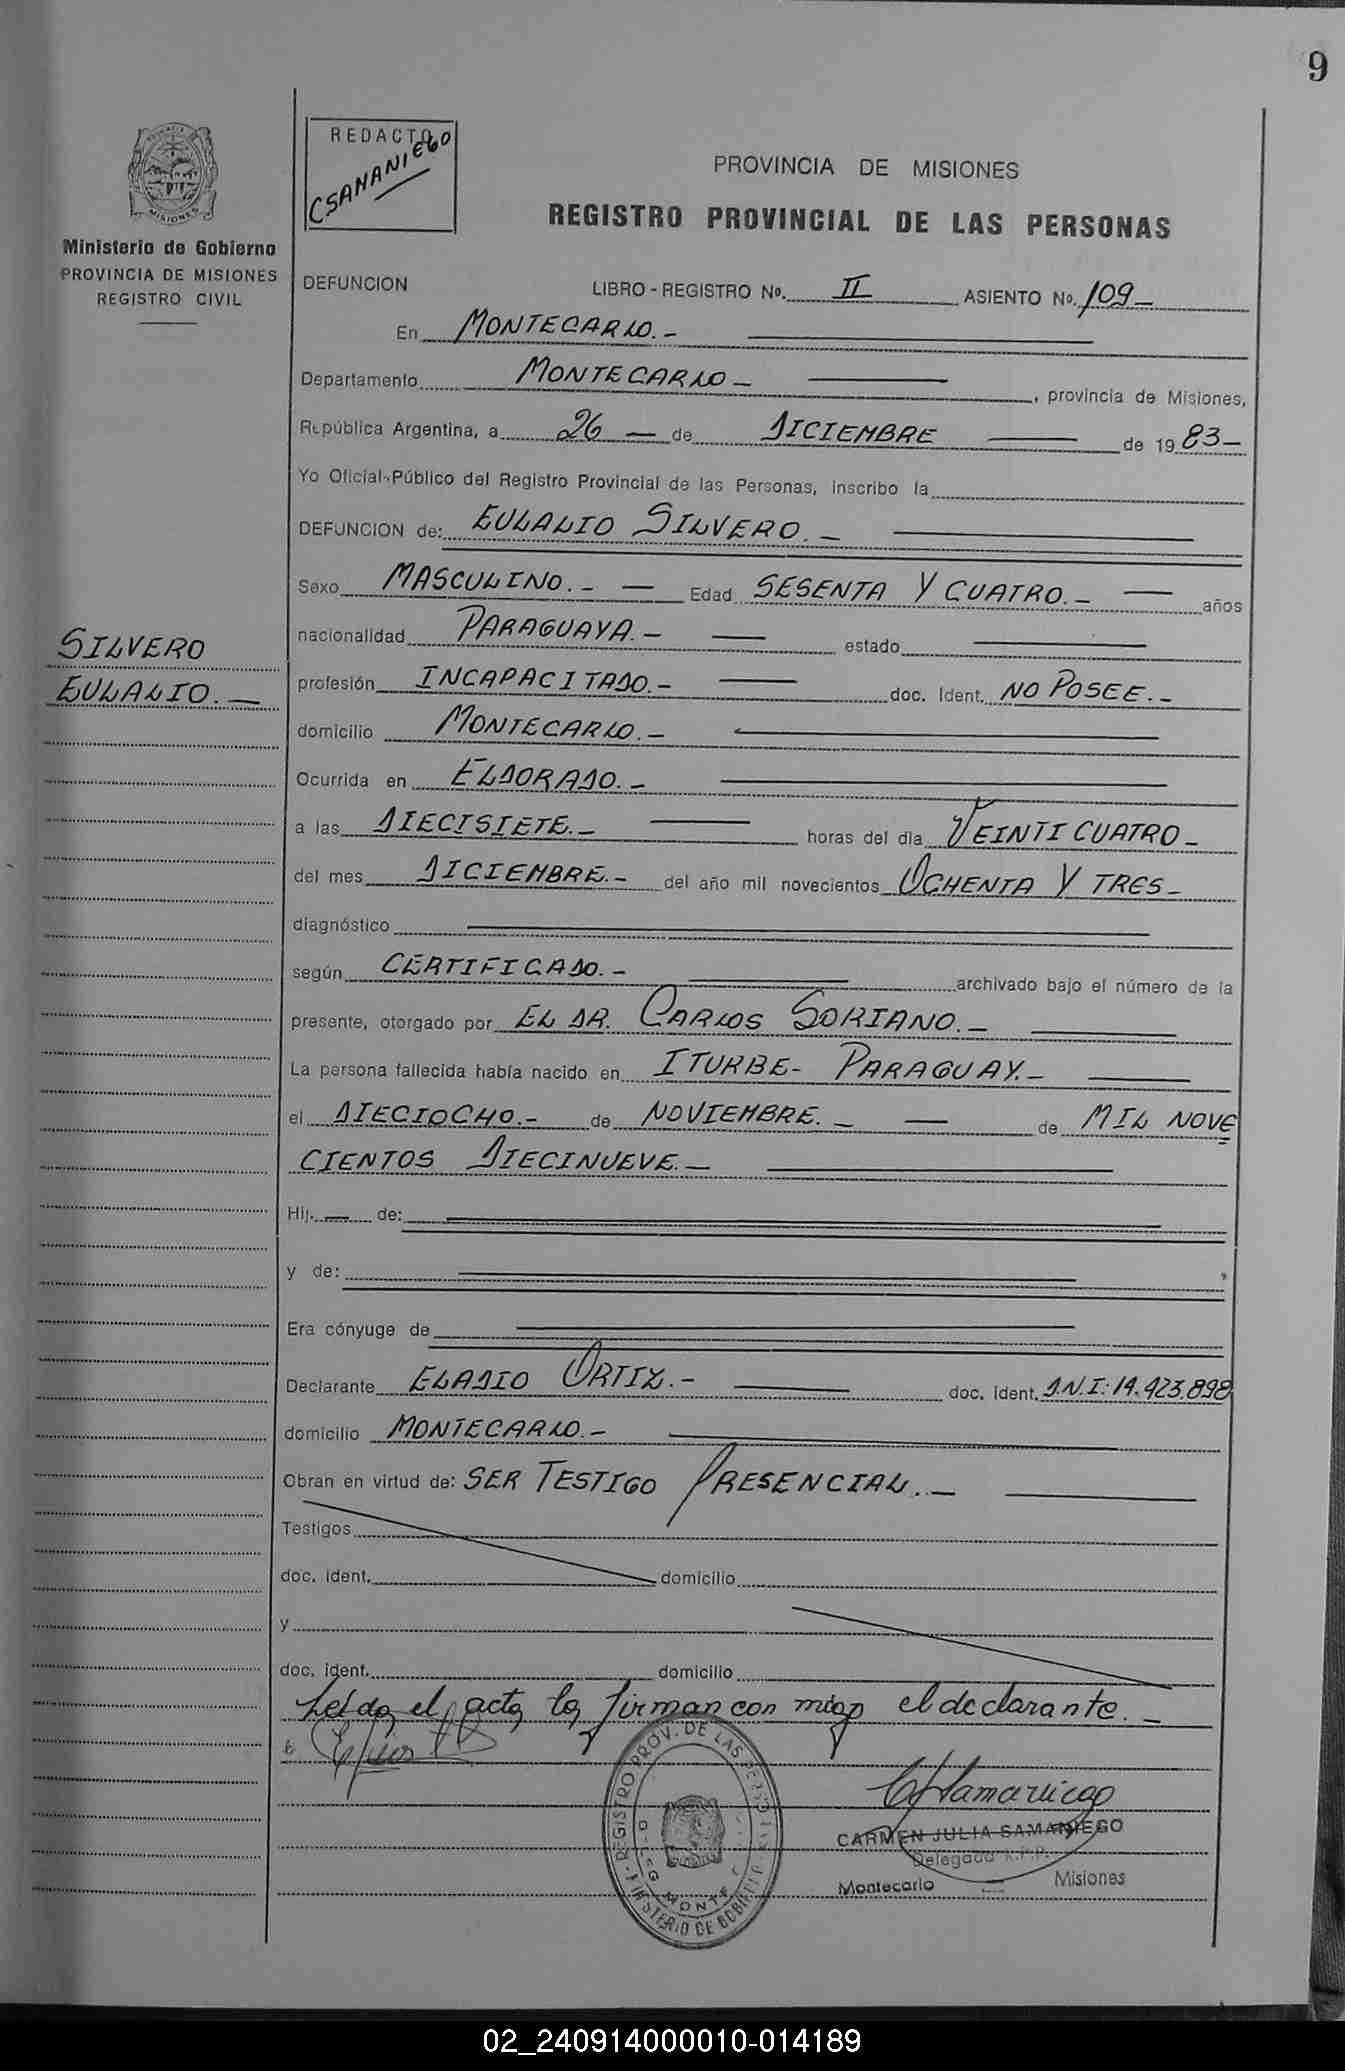 9
MISIONES
Ministerio de Gobierno
PROVINCIA DE MISIONES
REGISTRO CIVIL
REDACTO
CSAMANIEGO
PROVINCIA DE MISIONES
REGISTRO PROVINCIAL DE LAS PERSONAS
DEFUNCION LIBRO - REGISTRO Nº. II ASIENTO Nº. 109-
En MONTECARLO.-
Departamento MONTECARLO- , provincia de Misiones,
República Argentina, a 26 — de DICIEMBRE de 19 83-
Yo Oficial Público del Registro Provincial de las Personas, inscribo la
DEFUNCION de: EULALIO SILVERO.-
Sexo MASCULINO.- Edad SESENTA Y CUATRO.- años
nacionalidad PARAGUAYA.- estado
SILVERO
EULALIO.-
profesión INCAPACITADO.- doc. Ident. NO POSEE.-
domicilio MONTECARLO.-
Ocurrida en ELDORADO.-
a las DIECISIETE.- horas del día VEINTICUATRO-
del mes DICIEMBRE.- del año mil novecientos OCHENTA Y TRES-
diagnóstico
según CERTIFICADO.- archivado bajo el número de la
presente, otorgado por EL DR. CARLOS SORIANO.-
La persona fallecida había nacido en ITURBE- PARAGUAY.-
el DIECIOCHO.- de NOVIEMBRE.- de MIL NOVE
CIENTOS DIECINUEVE.-
Hij. — de:
y de:
Era cónyuge de
Declarante ELADIO ORTIZ.- doc. ident. D.N.I: 14.423.898
domicilio MONTECARLO.-
Obran en virtud de: SER TESTIGO PRESENCIAL.-
Testigos
doc. ident. domicilio
y
doc. ident. domicilio
Leída el acta la firman con migo el declarante.-
REGISTRO PROV. DE LAS
MINISTERIO DE GOBIERNO
CSamaniego
CARMEN JULIA SAMANIEGO
Delegada R.P.P.
Montecarlo — Misiones
02_240914000010-014189